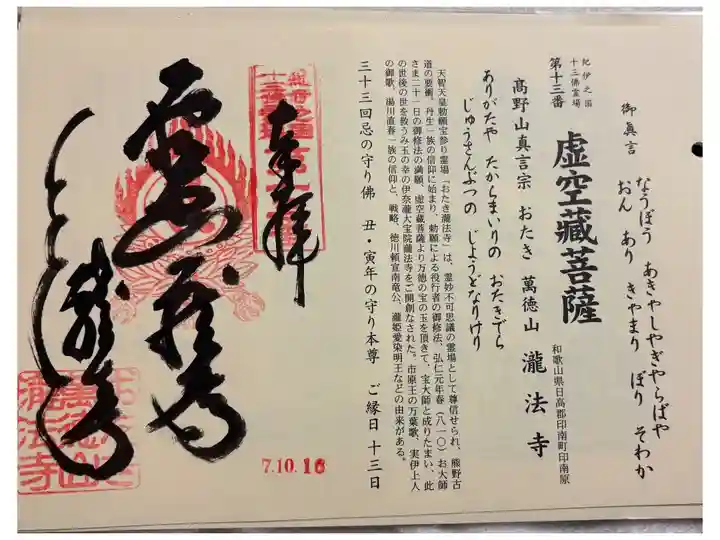 御眞言
なうぼう あきやしやぎやらばや
おん あり きやまり ぼり そわか
紀伊之国
十三佛霊場
第十三番 虚空藏菩薩
和歌山県日高郡印南町印南原
高野山真言宗 おたき 萬徳山 瀧法寺
ありがたや たからまいりの おたきでら
じゅうさんぶつの じようどなりけり
天智天皇勅願宝参り霊場「おたき瀧法寺」は、霊妙不可思議の霊場として尊信せられ、熊野古
道の要衝、丹生一族の信仰に始まり、勅願による役行者の御修法、弘仁元年春(八一〇)お大師
さま二十一日の御修法の満願、虚空蔵菩薩より万徳の宝の玉を頂きて、宝大師と成りたまい、此
の世後の世を救うみ玉の幸の伊奈瀧大宝院瀧法寺をご開創なされた。市原王の万葉歌、実伊上人
の御歌、湯川直春一族の信仰と、戦略、徳川頼宣南竜公、瀧姫愛染明王などの由来がある。
三十三回忌の守り佛 丑・寅年の守り本尊 ご縁日 十三日
奉拝
7.10.16
瀧法寺